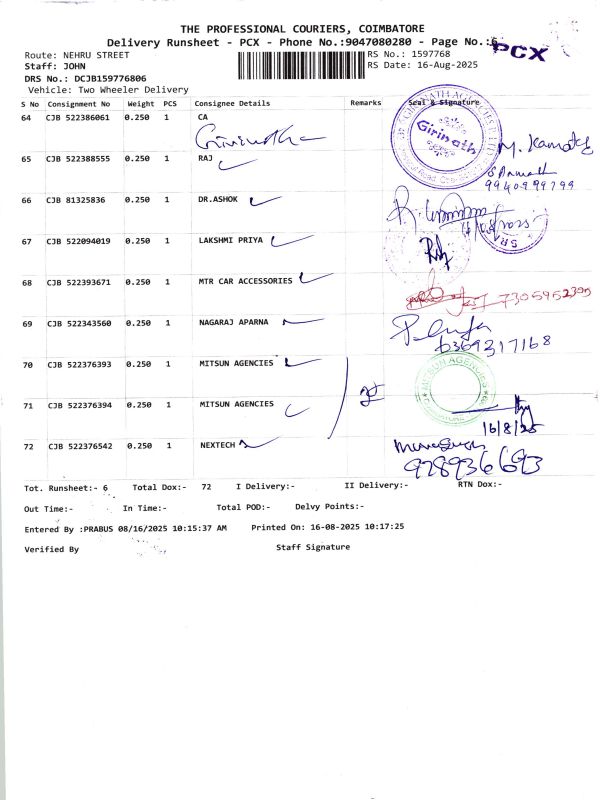 THE PROFESSIONAL COURIERS, COIMBATORE
Delivery Runsheet - PCX - Phone No.:9047080280 - Page No.:6
PCX
Route: NEHRU STREET
RS No.: 1597768
Staff: JOHN
RS Date: 16-Aug-2025
DRS No.: DCJB159776806
Vehicle: Two Wheeler Delivery
S No Consignment No Weight PCS Consignee Details Remarks Seal & Signature
64 CJB 522386061 0.250 1 CA
Girinath
M. Kamath
65 CJB 522388555 0.250 1 RAJ
9940999799
66 CJB 81325836 0.250 1 DR.ASHOK
67 CJB 522094019 0.250 1 LAKSHMI PRIYA
68 CJB 522393671 0.250 1 MTR CAR ACCESSORIES
7305952395
69 CJB 522343560 0.250 1 NAGARAJ APARNA
6369317168
70 CJB 522376393 0.250 1 MITSUN AGENCIES
MITSUN AGENCIES
71 CJB 522376394 0.250 1 MITSUN AGENCIES
16/8/25
72 CJB 522376542 0.250 1 NEXTECH
928936693
Tot. Runsheet:- 6 Total Dox:- 72 I Delivery:- II Delivery:- RTN Dox:-
Out Time:- In Time:- Total POD:- Delvy Points:-
Entered By :PRABUS 08/16/2025 10:15:37 AM Printed On: 16-08-2025 10:17:25
Verified By Staff Signature